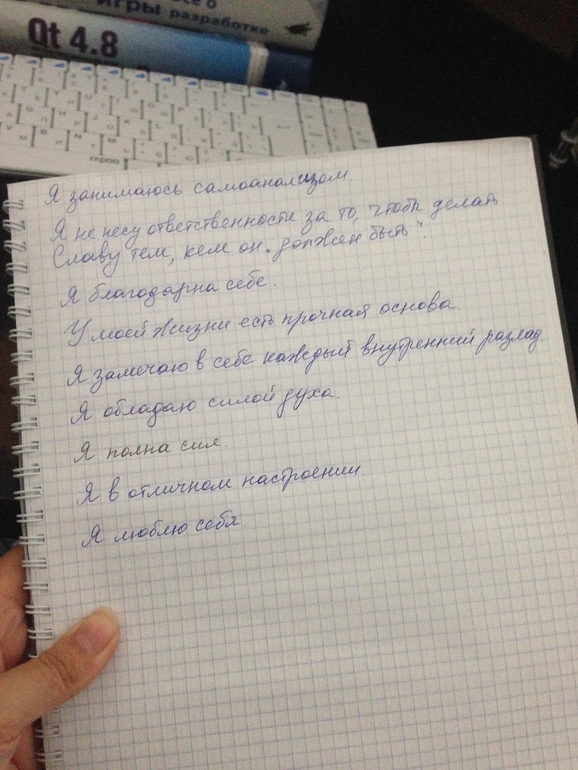 все о
игры разработке
Qt 4.8
Я занимаюсь самоанализом.
Я не несу ответственности за то, чтобы делать
Славу тем, кем он „должен быть“.
Я благодарна себе.
У моей жизни есть прочная основа.
Я замечаю в себе каждый внутренний разлад.
Я обладаю силой духа.
Я полна сил.
Я в отличном настроении.
Я люблю себя.